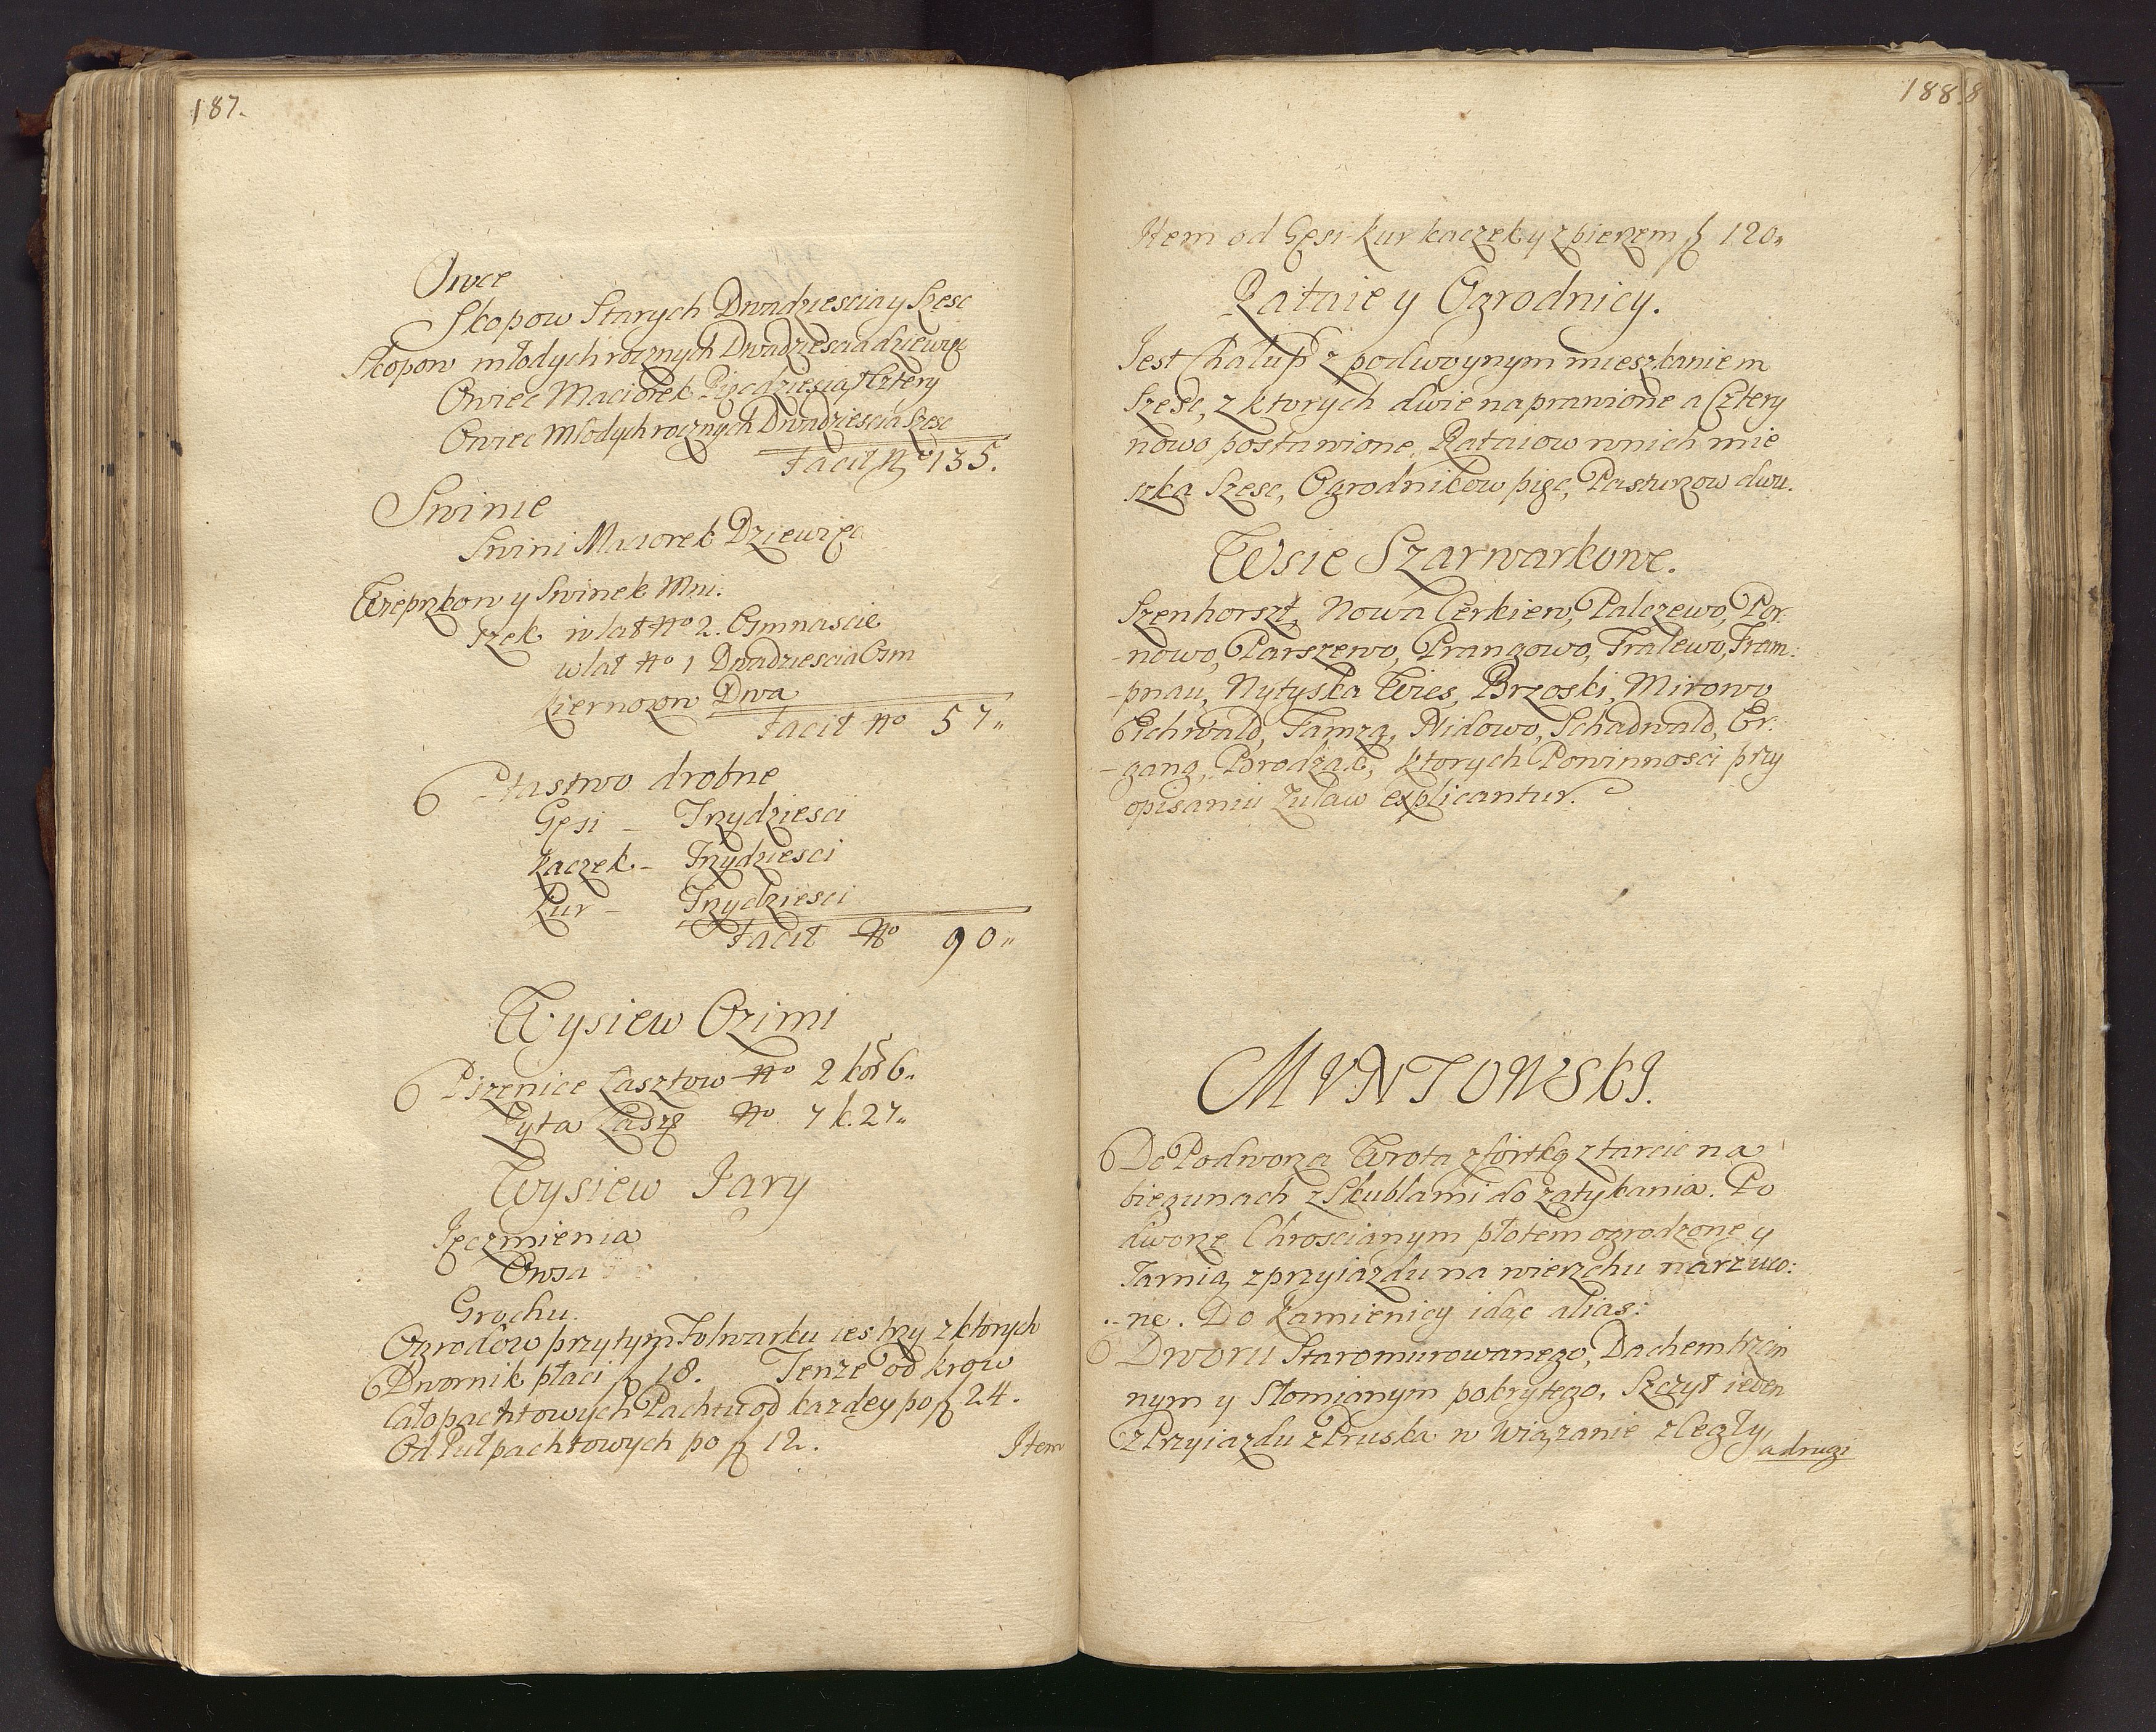 187.
Owce
Skopow Starych Dwadziescia y Szesc
Skopow młodych rocznych Dwadziescia dziewięc
Owiec Maciorek Pięcdziesiąt Cztery
Owiec Młodych rocznych Dwadziescia Szesc
Facit No 135.
Swinie
Swini Maciorek Dziewięc
Wieprzkow y Swinek Mni:
szek w lat No 2. Osmnascie
w lat No 1 Dwadziescia Osm
Kiernozow Dwa
Facit No 57"
Ptastwo drobne
Gęsi - Trzydziesci
Kaczek - Trzydziesci
Kur - Trzydziesci
Facit No 90"
Wysiew Ozimi
Pszenice Łasztow No 2 kor 6"
Zyta Łasz No 7 k. 27"
Wysiew Jary
Jęczmienia
Owsa
Grochu.
Ogrodow przytym Folwarku iest trzy z ktorych
Dwornik płaci f 18. Tenze od krow
Całopachtowych Pachtu od kazdey po f 24.
Od Pułpachtowych po f 12.
Item
188.
Item od Gęsi kur kaczek y z pierzem f 120"
Rataie y Ogrodnicy.
Jest Chałup z podwoynym mieszkaniem
Szesc, z ktorych dwie naprawione a Cztery
nowo postawione. Rataiow wnich mie
szka Szesc, Ogrodnikow pięc, Pasturzow dwu.
Wsie Szarwarkowe.
Szenhorszt, Nowa Cerkiew, Palczewo, Por:
-nowo, Parszewo, Prangowo, Tralewo, Tram:
-pnau, Nytyska Wies, Brzoski, Mirowo
Eichwald, Tamzą, Nidowo, Schadwald, Er:
-gang, Porodzak, ktorych Powinnosci przy
opisaniu Zuław explicantur.
MVNTOWSKI.
Do Podworza Wrota z fórtką z tarcic na
biegunach z Skublami do zatykania. Po
dworze Chroscianym płotem ogrodzone y
Tarnią z przyiazdu na wierzchu narzuco:
-ne. Do Kamienicy idąc alias:
Dworu Staromurowanego, Dachem trzcin
nym y Słomianym pokrytego, Szczyt ieden
z Przyiazdu z Pruska w Wiązanie z Cegły,
a drugi